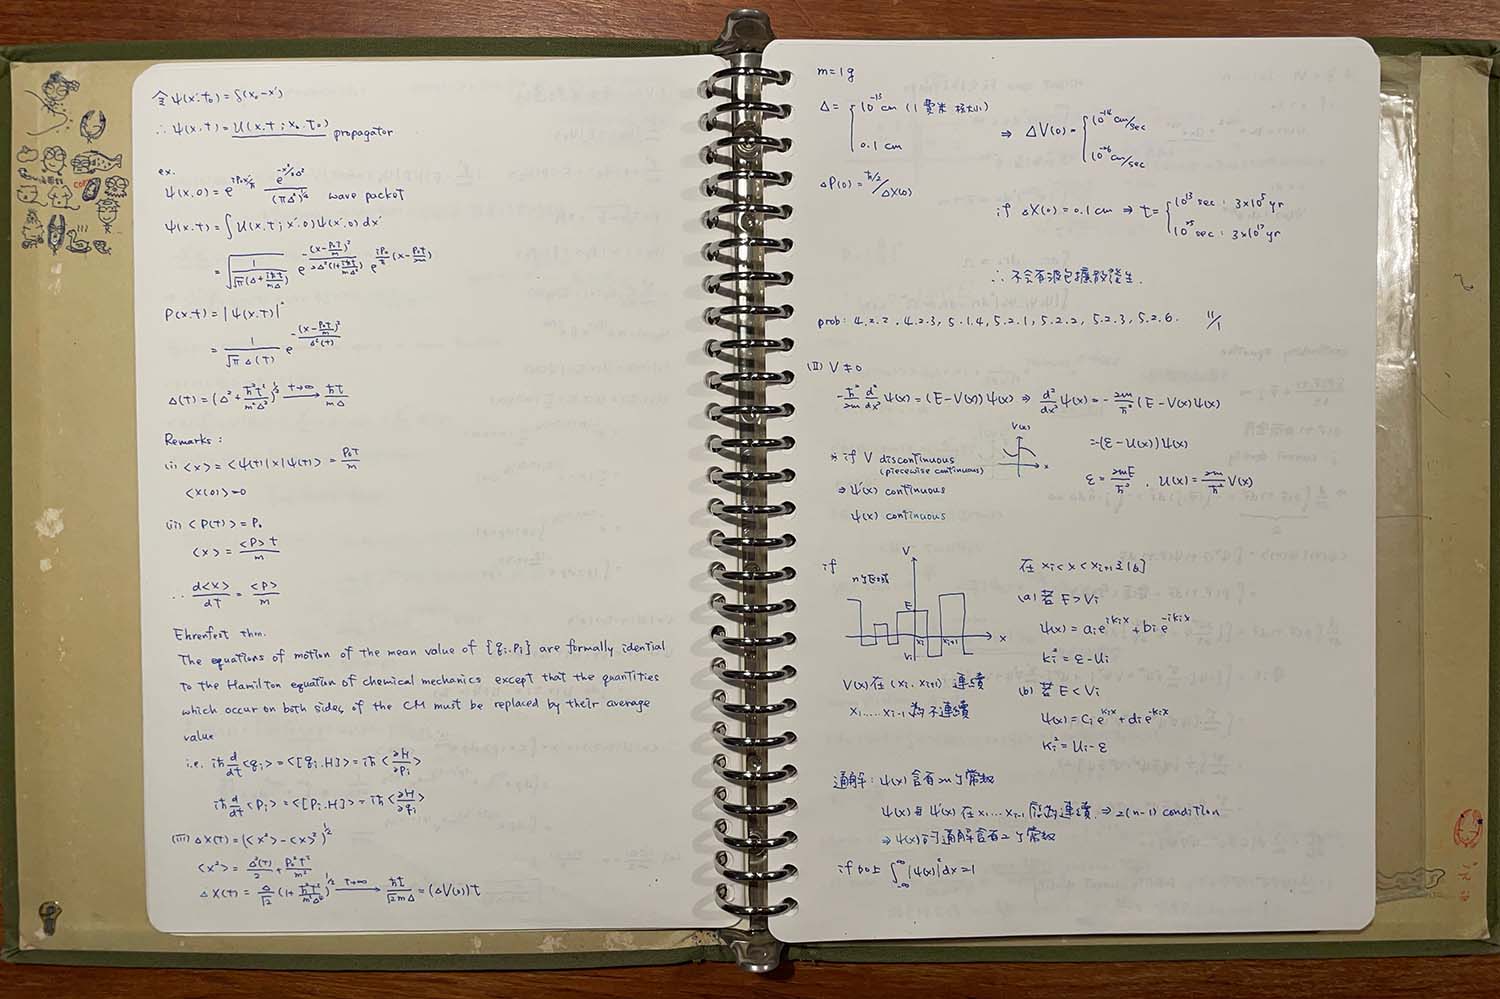 令 ψ(x',t₀) = δ(x₀-x')
∴ ψ(x,t) = U(x,t; x₀,t₀) propagator
ex.
ψ(x,0) = e^{iP₀x/ħ} e^{-x²/2Δ²}/(πΔ²)^{1/4} wave packet
ψ(x,t) = ∫U(x,t; x',0)ψ(x',0)dx'
= √(1/(√π(Δ+iħt/mΔ))) e^{-(x-P₀t/m)²/2Δ²(1+iħt/mΔ²)} e^{iP₀/ħ(x-P₀t/2m)}
P(x,t) = |ψ(x,t)|²
= 1/(√π Δ(t)) e^{-(x-P₀t/m)²/Δ²(t)}
Δ(t) = (Δ² + ħ²t²/m²Δ²)^{1/2} —t→∞→ ħt/mΔ
Remarks:
(i) <x> = <ψ(t)|x|ψ(t)> = P₀t/m
<x(0)> = 0
(ii) <P(t)> = P₀
<x> = <P>t/m
∴ d<x>/dt = <P>/m
Ehrenfest thm.
The equations of motion of the mean value of {qᵢ,Pᵢ} are formally idential
to the Hamilton equation of chemical mechanics except that the quantities
which occur on both sides of the CM must be replaced by their average
value
i.e. iħ d/dt <qᵢ> = <[qᵢ,H]> = iħ <∂H/∂Pᵢ>
iħ d/dt <Pᵢ> = <[Pᵢ,H]> = iħ <∂H/∂qᵢ>
(iii) ΔX(t) = (<x²> - <x>²)^{1/2}
<x²> = Δ²(t)/2 + P₀²t²/m²
ΔX(t) = Δ/√2 (1+ħ²t²/m²Δ⁶)^{1/2} —t→∞→ ħt/√2mΔ = (ΔV(0))t
m=1g
Δ = { 10^{-13} cm (1費米 核大小)
0.1 cm
⇒ ΔV(0) = { 10^{-14} cm/sec
10^{-26} cm/sec
ΔP(0) = ħ/2 / ΔX(0)
if ΔX(0) = 0.1 cm ⇒ t = { 10^{13} sec : 3×10⁵ yr
10^{25} sec : 3×10^{17} yr
∴ 不會有波包擴散發生.
prob: 4.2.2, 4.2.3, 5.1.4, 5.2.1, 5.2.2, 5.2.3, 5.2.6. 11/1
(II) V≠0
-ħ²/2m d²/dx² ψ(x) = (E-V(x))ψ(x) ⇒ d²/dx² ψ(x) = -2m/ħ² (E-V(x)ψ(x)
= -(ε-U(x))ψ(x)
ε = 2mE/ħ², U(x) = 2m/ħ² V(x)
※ if V discontinuous
(piecewise continuous)
V(x)
x
⇒ ψ'(x) continuous
ψ(x) continuous
if
n個區域
V
E
xᵢ
xᵢ₊₁
x
Vᵢ
V(x)在(xᵢ, xᵢ₊₁) 連續
x₁.....xᵢ₋₁ 為不連續
在 xᵢ<x<xᵢ₊₁ 3 16]
(a) 若 E>Vᵢ
ψ(x) = aᵢe^{ikᵢx} + bᵢe^{-ikᵢx}
kᵢ² = ε-Uᵢ
(b) 若 E<Vᵢ
ψ(x) = Cᵢe^{kᵢx} + dᵢe^{-kᵢx}
kᵢ² = Uᵢ-ε
通解: ψ(x)含有2n個常數
ψ(x)與ψ'(x)在x₁....xₙ₋₁ 連續 ⇒ 2(n-1) condition
⇒ ψ(x)的通解含有2個常數
if 加上 ∫_{-∞}^{∞} |ψ(x)|²dx=1